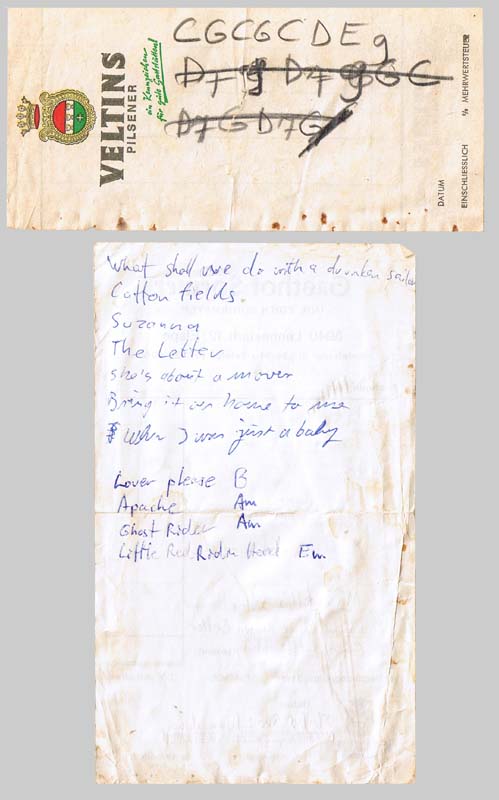 CGCGCDEg
DFg DF gGC
DFGDFG
VELTINS
PILSENER
ein Kennzeichen
für gute Gaststätten!
DATUM
EINSCHLIESSLICH % MEHRWERTSTEUER
What shall we do with a drunken sailor
Cotton fields
Suzanna
The Letter
she's about a mover
Bring it on home to me
When I was just a baby
Lover please B
Apache Am
Ghost Rider Am
Little Red Ridin Hood Em